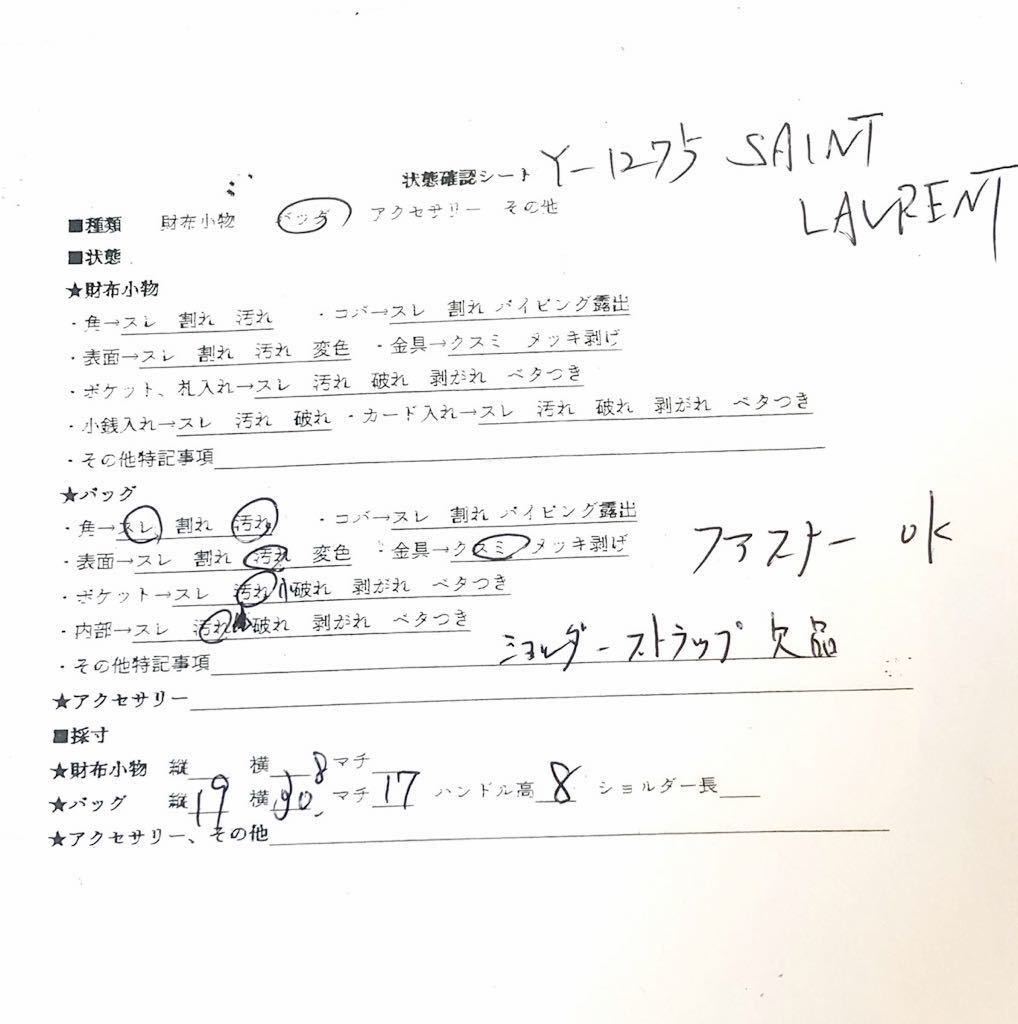 状態確認シート Y-1275 SAINT
LAURENT
■種類 財布小物 バッグ アクセサリー その他
■状態
★財布小物
・角→スレ 割れ 汚れ ・コバ→スレ 割れ パイピング露出
・表面→スレ 割れ 汚れ 変色 ・金具→クスミ メッキ剥げ
・ポケット、札入れ→スレ 汚れ 破れ 剥がれ ベタつき
・小銭入れ→スレ 汚れ 破れ ・カード入れ→スレ 汚れ 破れ 剥がれ ベタつき
・その他特記事項
★バッグ
・角→スレ 割れ 汚れ ・コバ→スレ 割れ パイピング露出
・表面→スレ 割れ 汚れ 変色 ・金具→クスミ メッキ剥げ
ファスナー OK
・ポケット→スレ 汚れ 破れ 剥がれ ベタつき
・内部→スレ 汚れ 破れ 剥がれ ベタつき
・その他特記事項 ショルダーストラップ 欠品
★アクセサリー
■採寸
★財布小物 縦 横 8 マチ
★バッグ 縦 19 横 マチ 17 ハンドル高 8 ショルダー長
★アクセサリー、その他